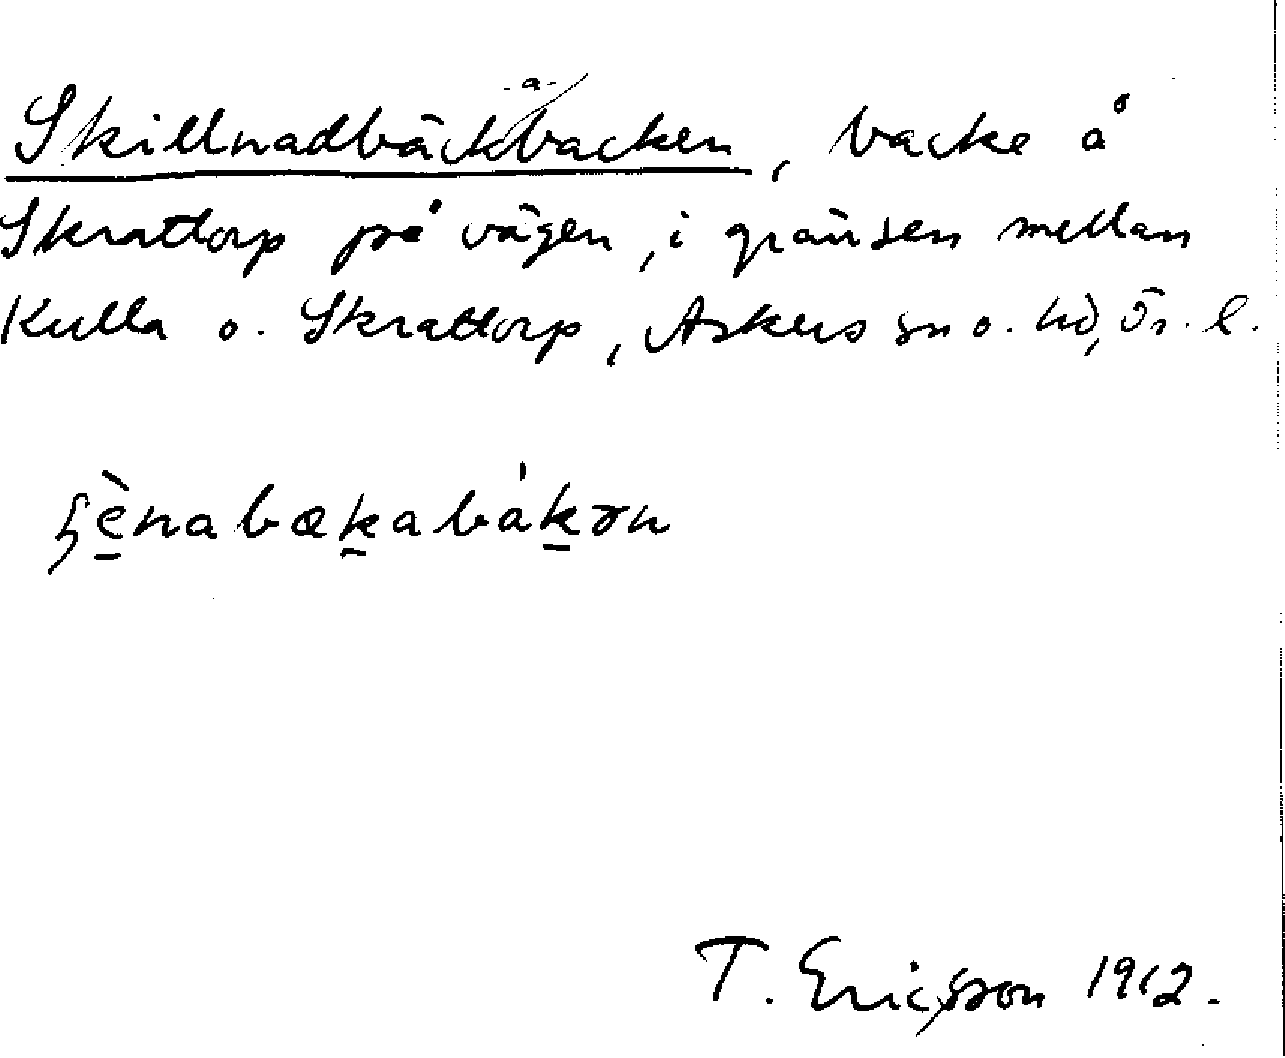 -a-
Skillnadbäckbacken, backe å
Skrattorp på vägen, i gränsen mellan
Kulla o. Skrattorp, Askers sn o. hd, Ör. l.
T. Ericsson 1912.